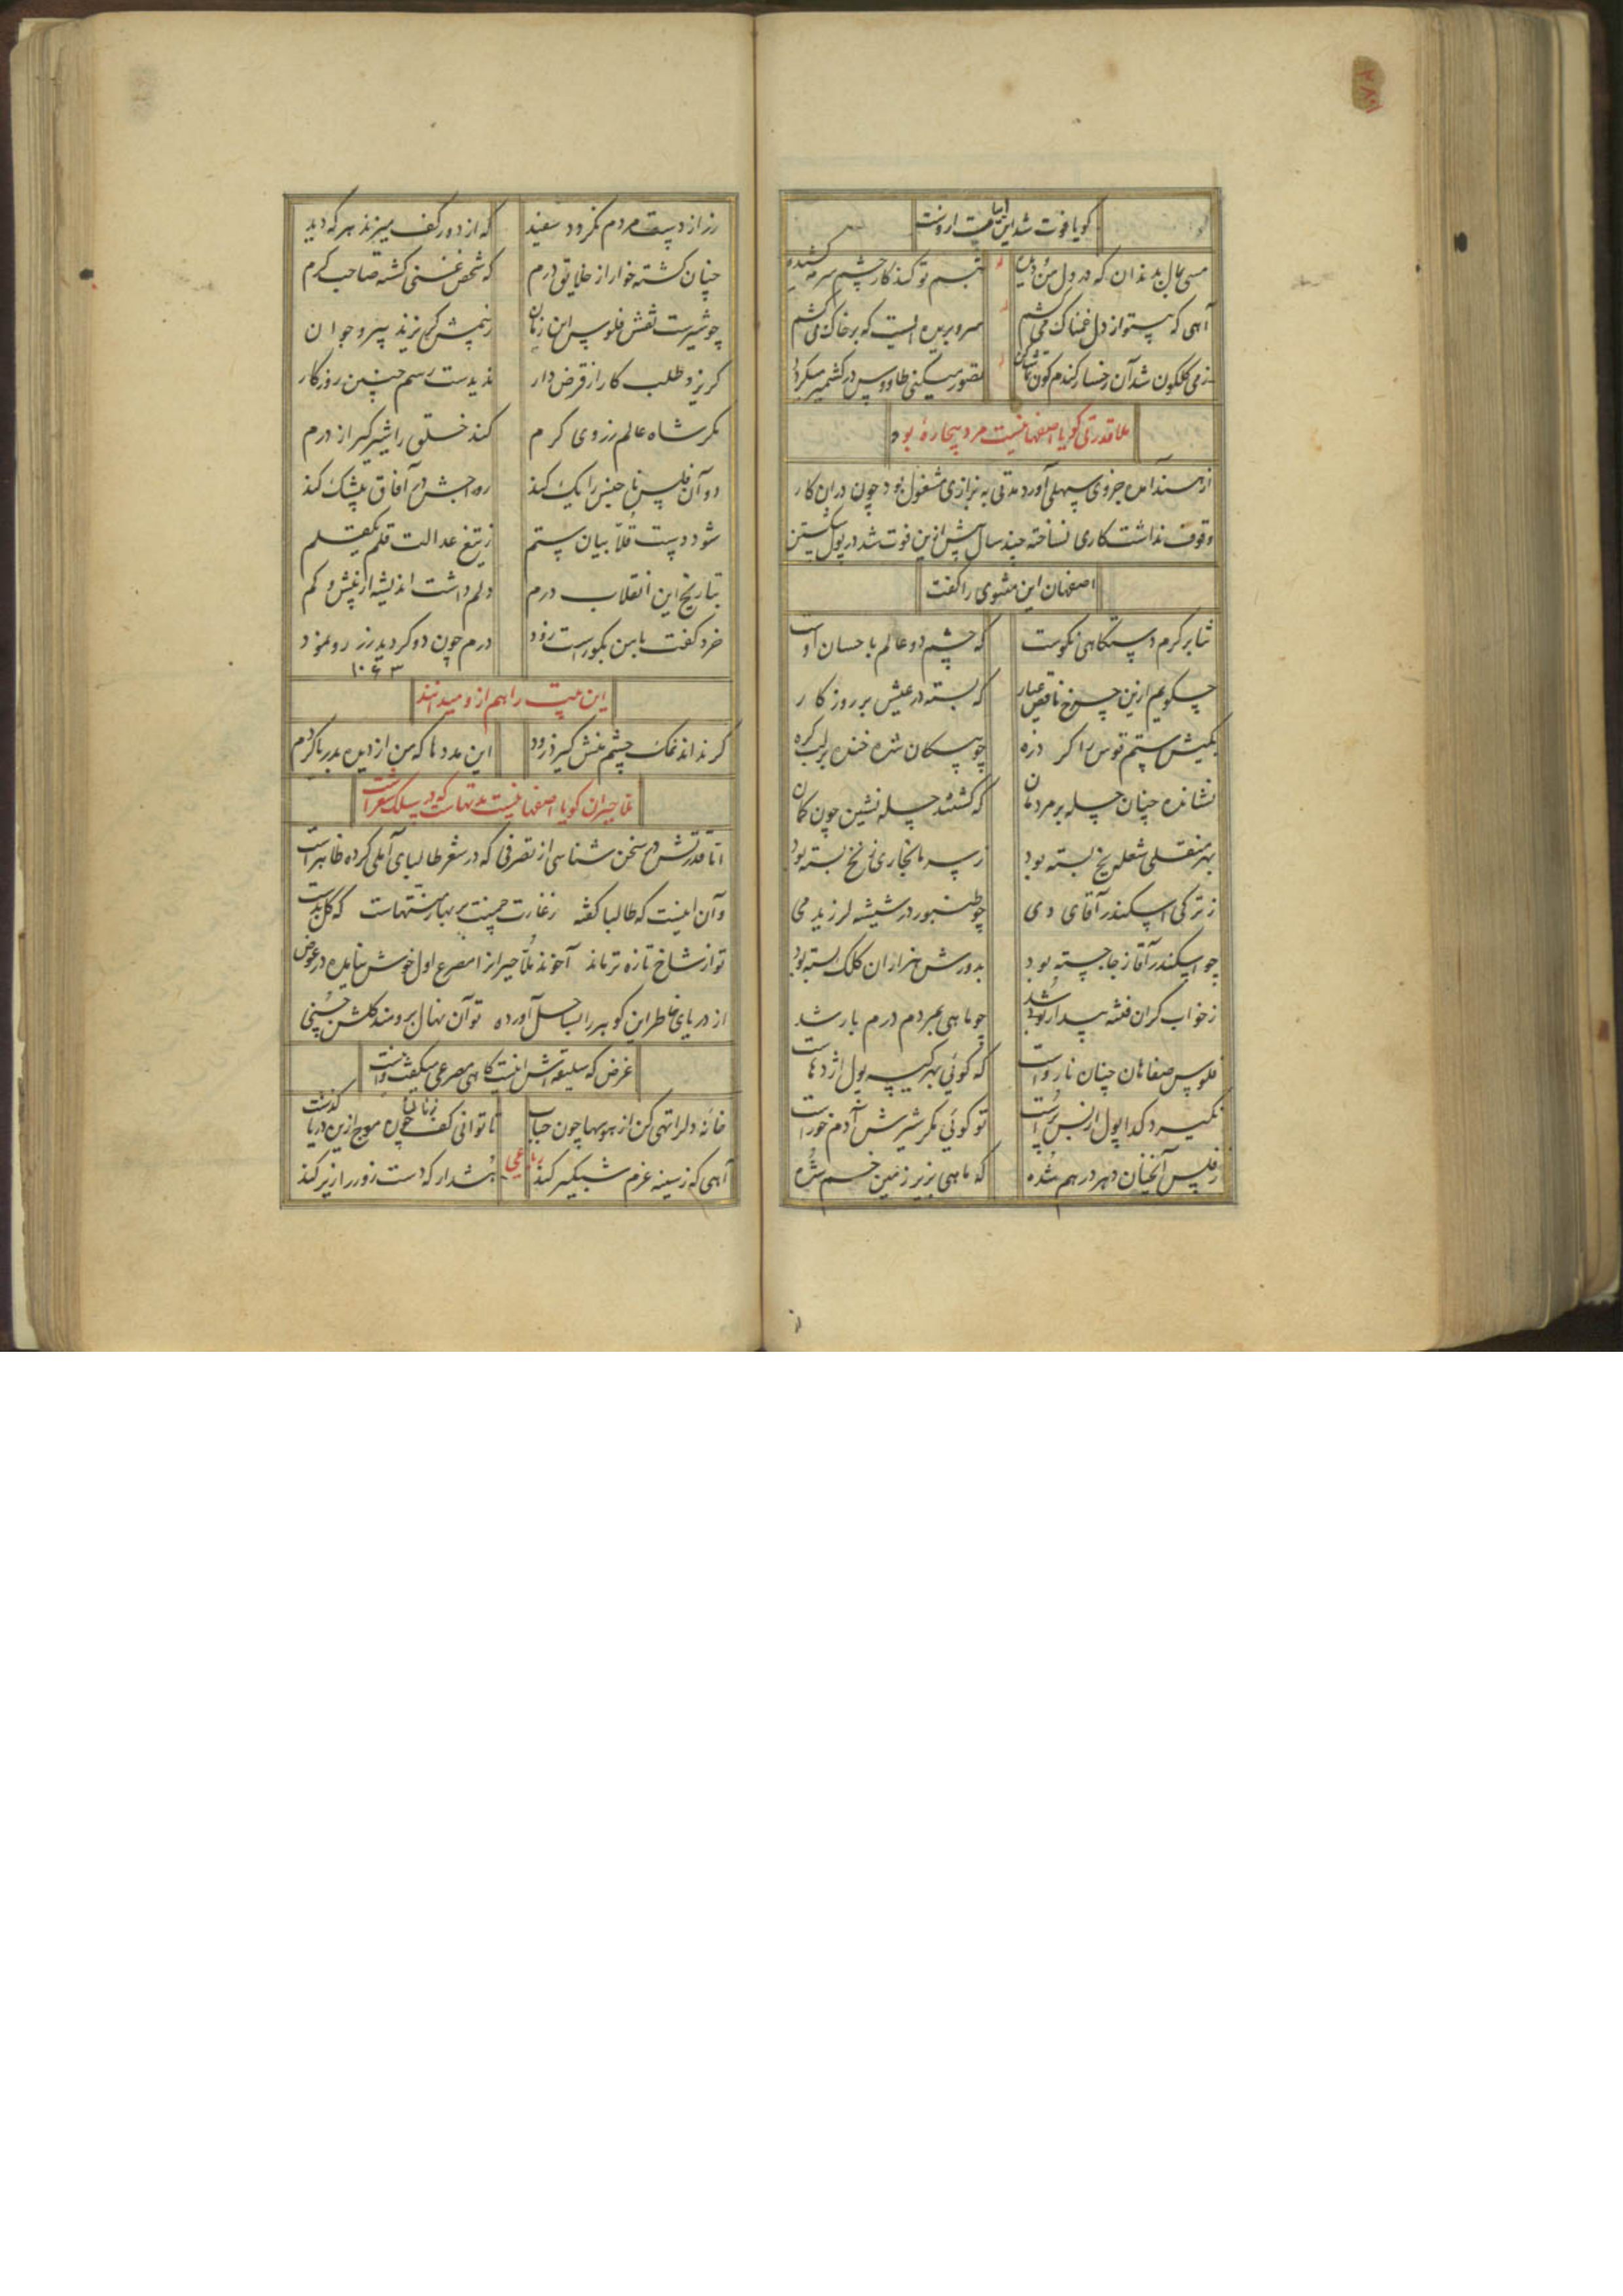 گویا فوت شد این ابیات ازوست
مسی بمال بدندان که در دل من
تبسم تو کند کار چشم سرمه کشیده
آهی که بیتو از دل غمناک می کشم
سرو بریده ایست که بر خاک می کشم
ز می گلگون شد آن رخسار گندم گون
تصور میکنی طاووس در کشمیر میگردد
ملا قدرتی گویا اصفهانیست مرد بیچاره بود
از هند آمده جزوی سهلی آورد مدتی به بزازی مشغول بود چون در آن کار
وقوف نداشت کاری نساخته چند سال پیش ازین فوت شد در پول شکستن
اصفهان این مثنوی را گفت
ثنا بر کرم دستگاهی نکوست
که چشم دو عالم باحسان اوست
چگویم ازین چرخ ناقص عیار
که بسته در عیش بر روزگار
بکیش ستم قوس را کرد زه
چو پیکان شده خنده بر لب گره
نشانده چنان چله بر مردمان
که گشتند چله نشین چون کمان
بهر منقلی شعله یخ بسته بود
ز سرما بخاری نخ بسته بود
ز ترکی اسکندر آقای دی
چو طنبور در شیشه لرزید می
چو اسکندر آقا ز جا جسته بود
بدورش هزاران کلک بسته بود
ز خواب گران فتنه بیدار شد
چو ماهی بمردم درم بار شد
فلوس صفاهان چنان نارواست
که گوئی بهر کیسه پول اژدهاست
نگیرد گدا پول از بس
تو گوئی مگر شیرش آدم خور است
ز فلس آنچنان دهر درهم شده
که ماهی بزیر زمین خم شده
زر از دست مردم نگردد سفید
که از دور کف میزند هر که دید
چنان گشته خوار از خلایق درم
که شخص غنی گشته صاحب کرم
چو شیرست نقش فلوس این زمان
ز پیشش گریزند پیر و جوان
گریزد طلب کار از قرض دار
ندیدست رسم چنین روزگار
مگر شاه عالم ز روی کرم
کند خلق را شیرگیر از درم
دو آن فلس ناجنس را یک کند
رواجش در آفاق بیشک کند
شود دست قلاب بیان ستم
ز تیغ عدالت قلم یکقلم
بتاریخ این انقلاب درم
دلم داشت اندیشه از بیش و کم
خرد گفت با من بگو راست زود
درم چون دو گردید زر رو نمود
۱۰۶۳
این بیت را هم ازو میدانند
گر نداند نمک چشم منش گیرد زود
این مددها که من از دیده بدریا کردم
ملا حیران گویا اصفهانیست مدتهاست که در سلک شعراست
اما قدرتش در سخن شناسی از تصرفی که در شعر طالبای آملی کرده ظاهر است
و آن اینست که طالبا گفته ز غارت چمنت بر بهار منتهاست که گل بدست
تو از شاخ تازه تر ماند آخوند ملا حیران مصرع اول خوش نیامده در عوض
از دریای خاطر این گوهر را بساحل آورده تو آن نهال برومند گلشن حسنی
غرض که سلیقه اش اینست گاهی مصرعی میگفت
خانه دل را تهی کن از هوسها چون حباب
تا توانی کف زنان چون موج ازین دریا گذشت
رباعی
آهی که ز سینه عزم شبگیر کند
هشدار که دست زور را زیر کند